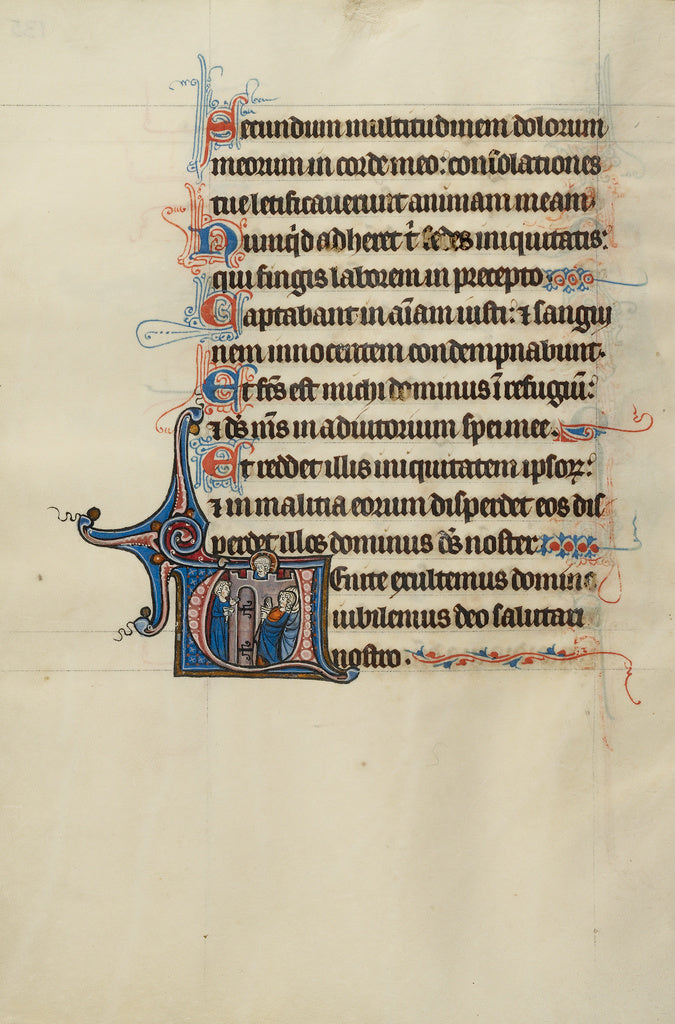 Secundum multitudinem dolorum
meorum in corde meo: consolationes
tue letificauerunt animam meam
Nunq̄d adheret t̄ sedes iniquitatis:
qui fingis laborem in precepto
Captabant in aīam iusti: ⁊ sangui
nem innocentem condempnabunt.
Et fc̄s est michi dominus ī refugiū:
⁊ dˢ mˢ in adiutorium spei mee.
Et reddet illis iniquitatem ipsoꝝ:
⁊ in malitia eorum disperdet eos dis
perdet illos dominus dˢ noster
Uenite exultemus domino
iubilemus deo salutari
nostro.